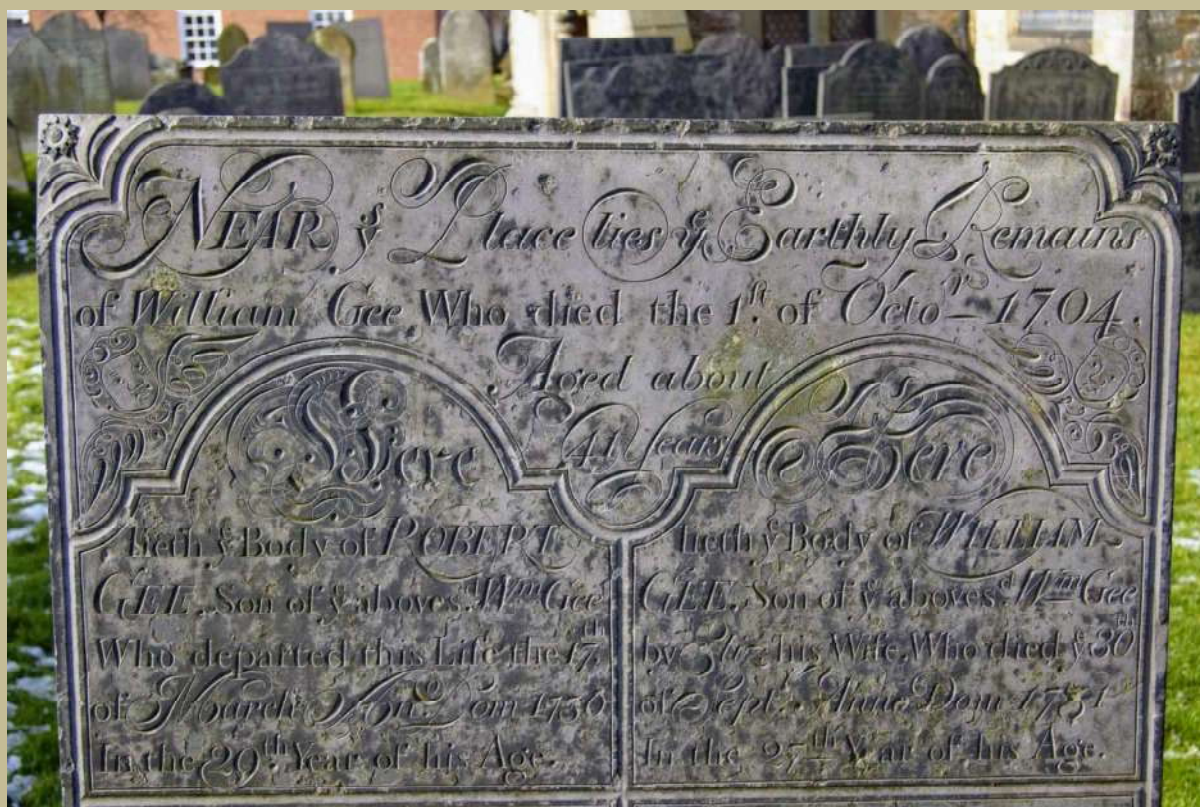 NEAR yͤ Place lies yͤ Earthly Remains
of William Gee Who died the 1.ˢᵗ of Octoᵇʳ 1704.
Aged about
41 Years
Here
lieth yͤ Body of ROBERT
GEE, Son of yͤ aboves.ᵈ Wᵐ Gee
Who departed this Life the 17ᵗʰ
of March An. Dom 1730
In the 29.ᵗʰ Year of his Age.
Here
lieth yͤ Body of WILLIAM
GEE, Son of yͤ aboves.ᵈ Wᵐ Gee
by his Wife, Who died yͤ 30ᵗʰ
of Sept.ʳ Anno Dom 1731
In the 27ᵗʰ Year of his Age.